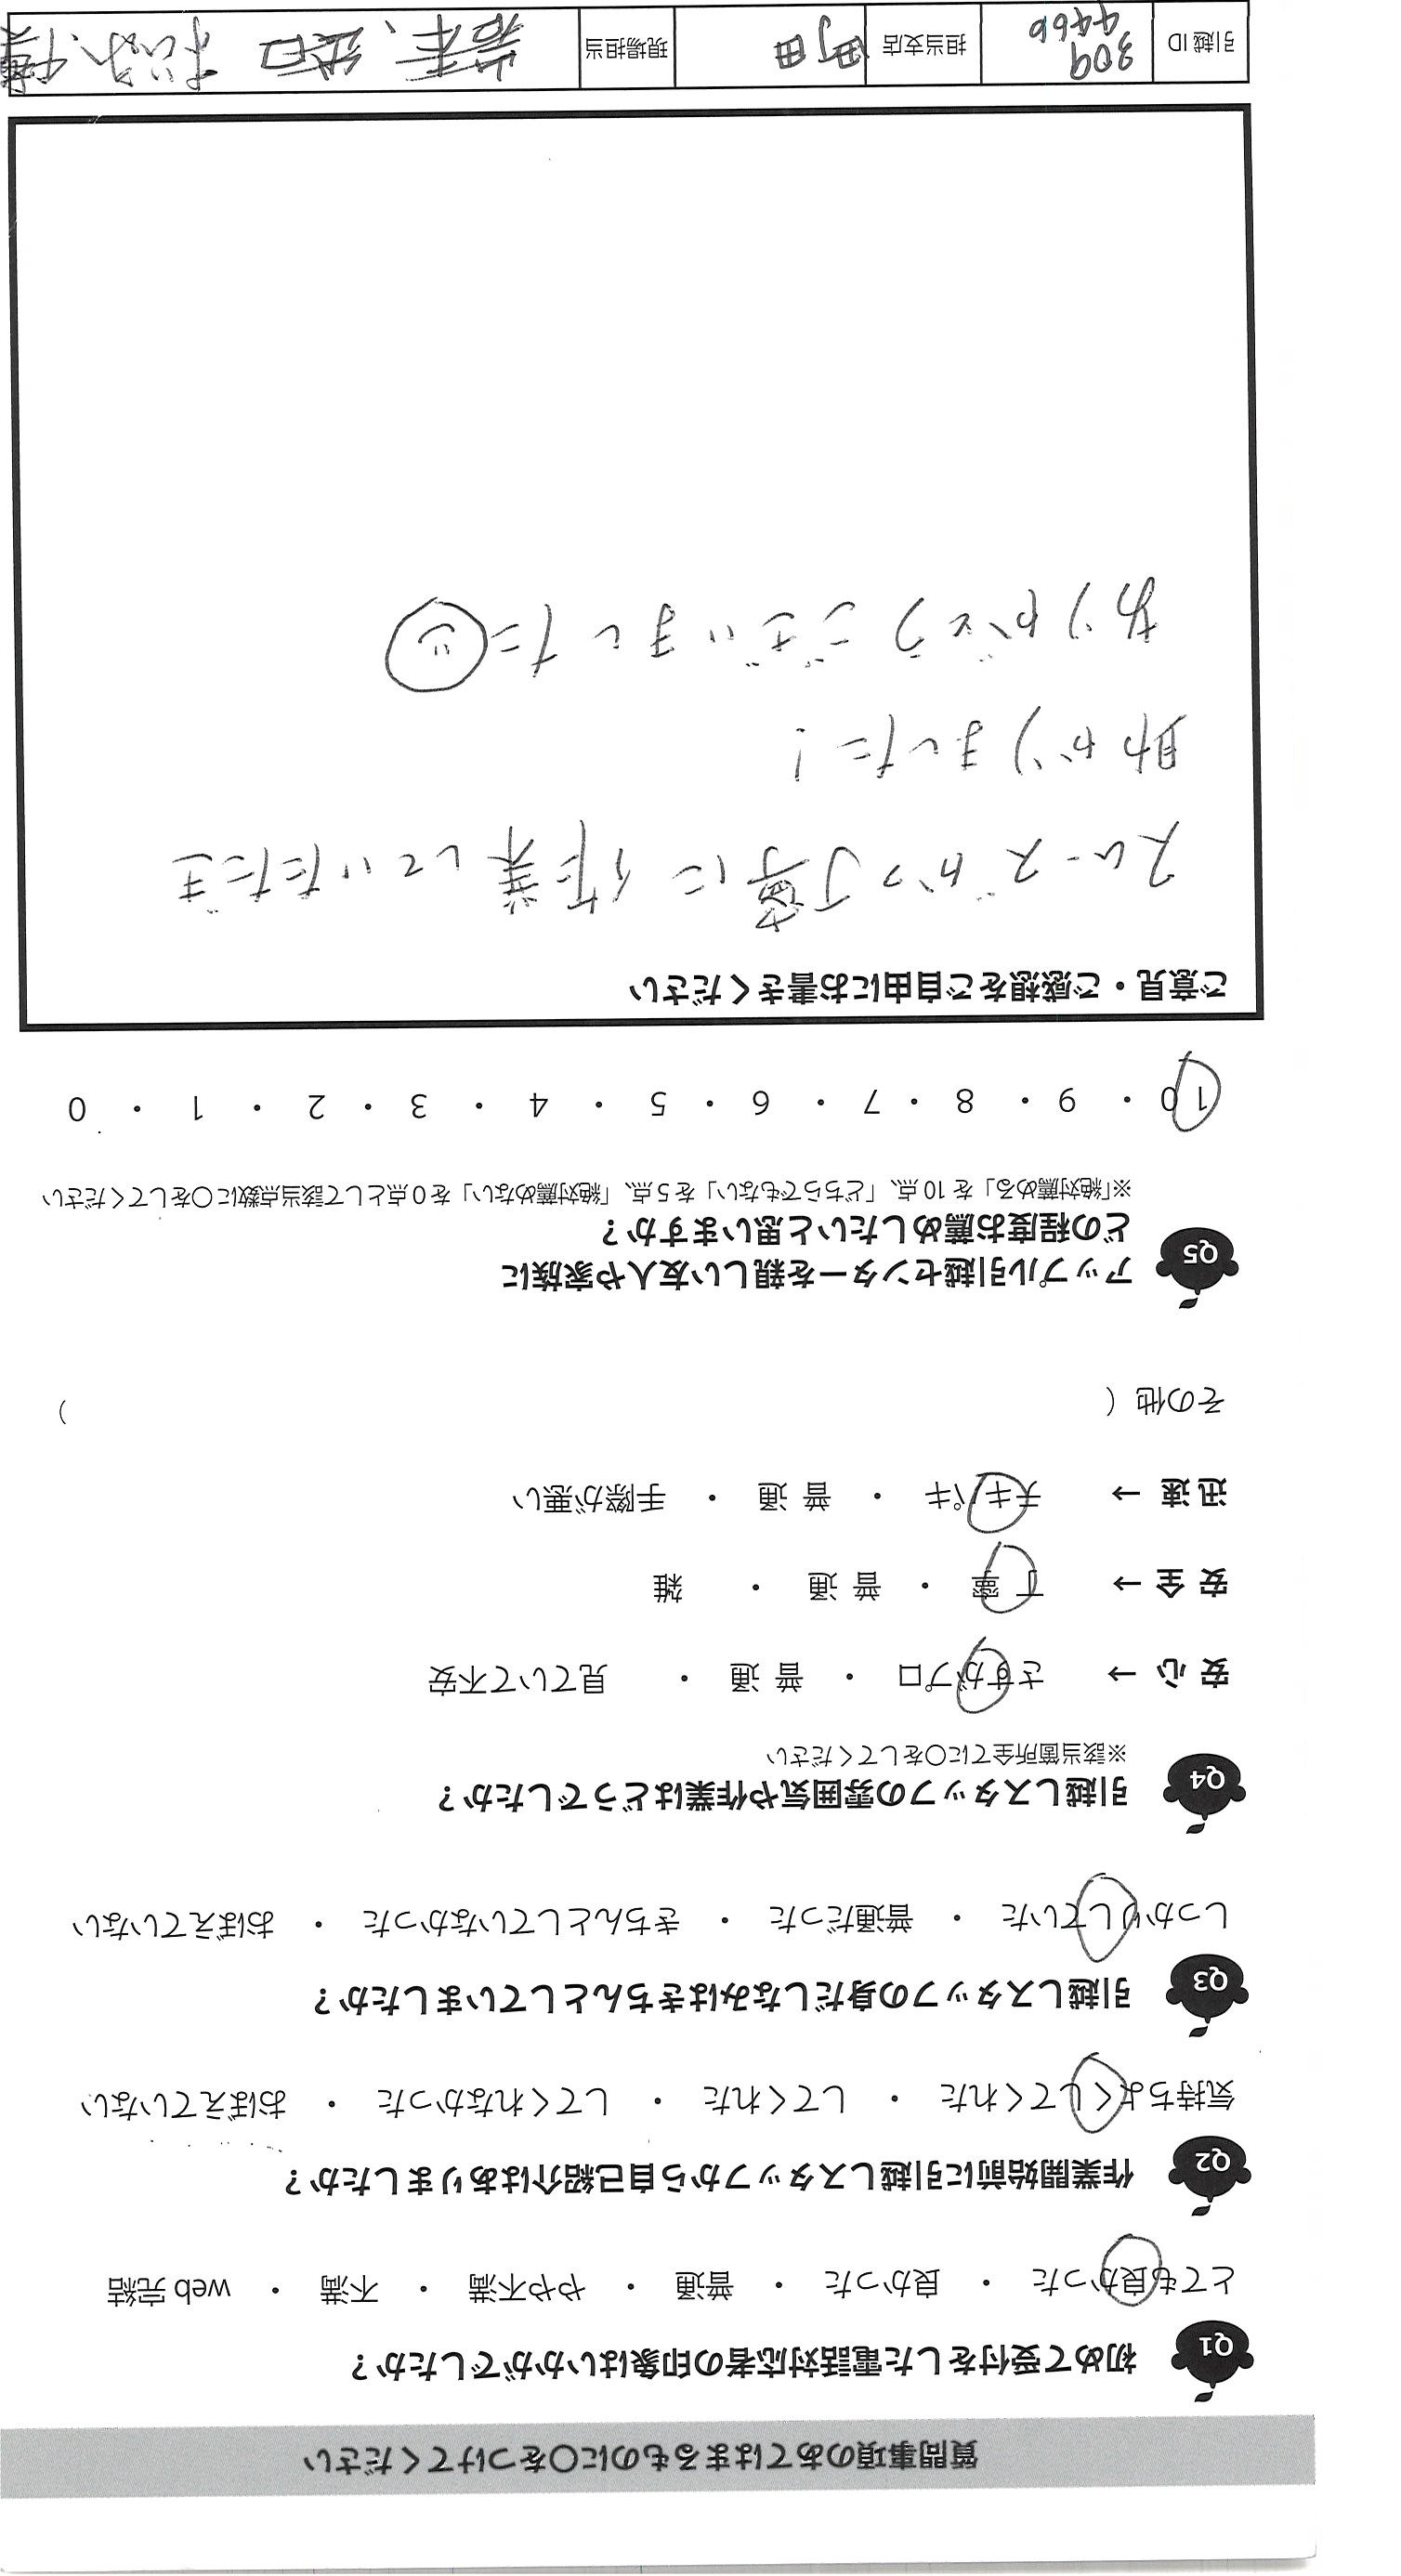 質問事項のあてはまるものに〇をつけてください
Q1 初めて受付をした電話対応者の印象はいかがでしたか？
とても良かった ・ 良かった ・ 普通 ・ やや不満 ・ 不満 ・ web完結
Q2 作業開始前に引越しスタッフから自己紹介はありましたか？
気持ちよくしてくれた ・ してくれた ・ してくれなかった ・ おぼえていない
Q3 引越しスタッフの身だしなみはきちんとしていましたか？
しっかりしていた ・ 普通だった ・ きちんとしていなかった ・ おぼえていない
Q4 引越しスタッフの雰囲気や作業はどうでしたか？
※該当箇所全てに〇をしてください
安心 → さすがプロ ・ 普通 ・ 見ていて不安
安全 → 丁寧 ・ 普通 ・ 雑
迅速 → テキパキ ・ 普通 ・ 手際が悪い
その他（ ）
Q5 アップル引越センターを親しい友人や家族に
どの程度お薦めしたいと思いますか？
※「絶対薦める」を10点、「どちらでもない」を5点、「絶対薦めない」を0点として該当点数に〇をしてください
10 ・ 9 ・ 8 ・ 7 ・ 6 ・ 5 ・ 4 ・ 3 ・ 2 ・ 1 ・ 0
ご意見・ご感想をご自由にお書きください
スムーズかつ丁寧に作業していただき
助かりました！
ありがとうございました
引越ID 309
9466 担当支店 町田 現場担当